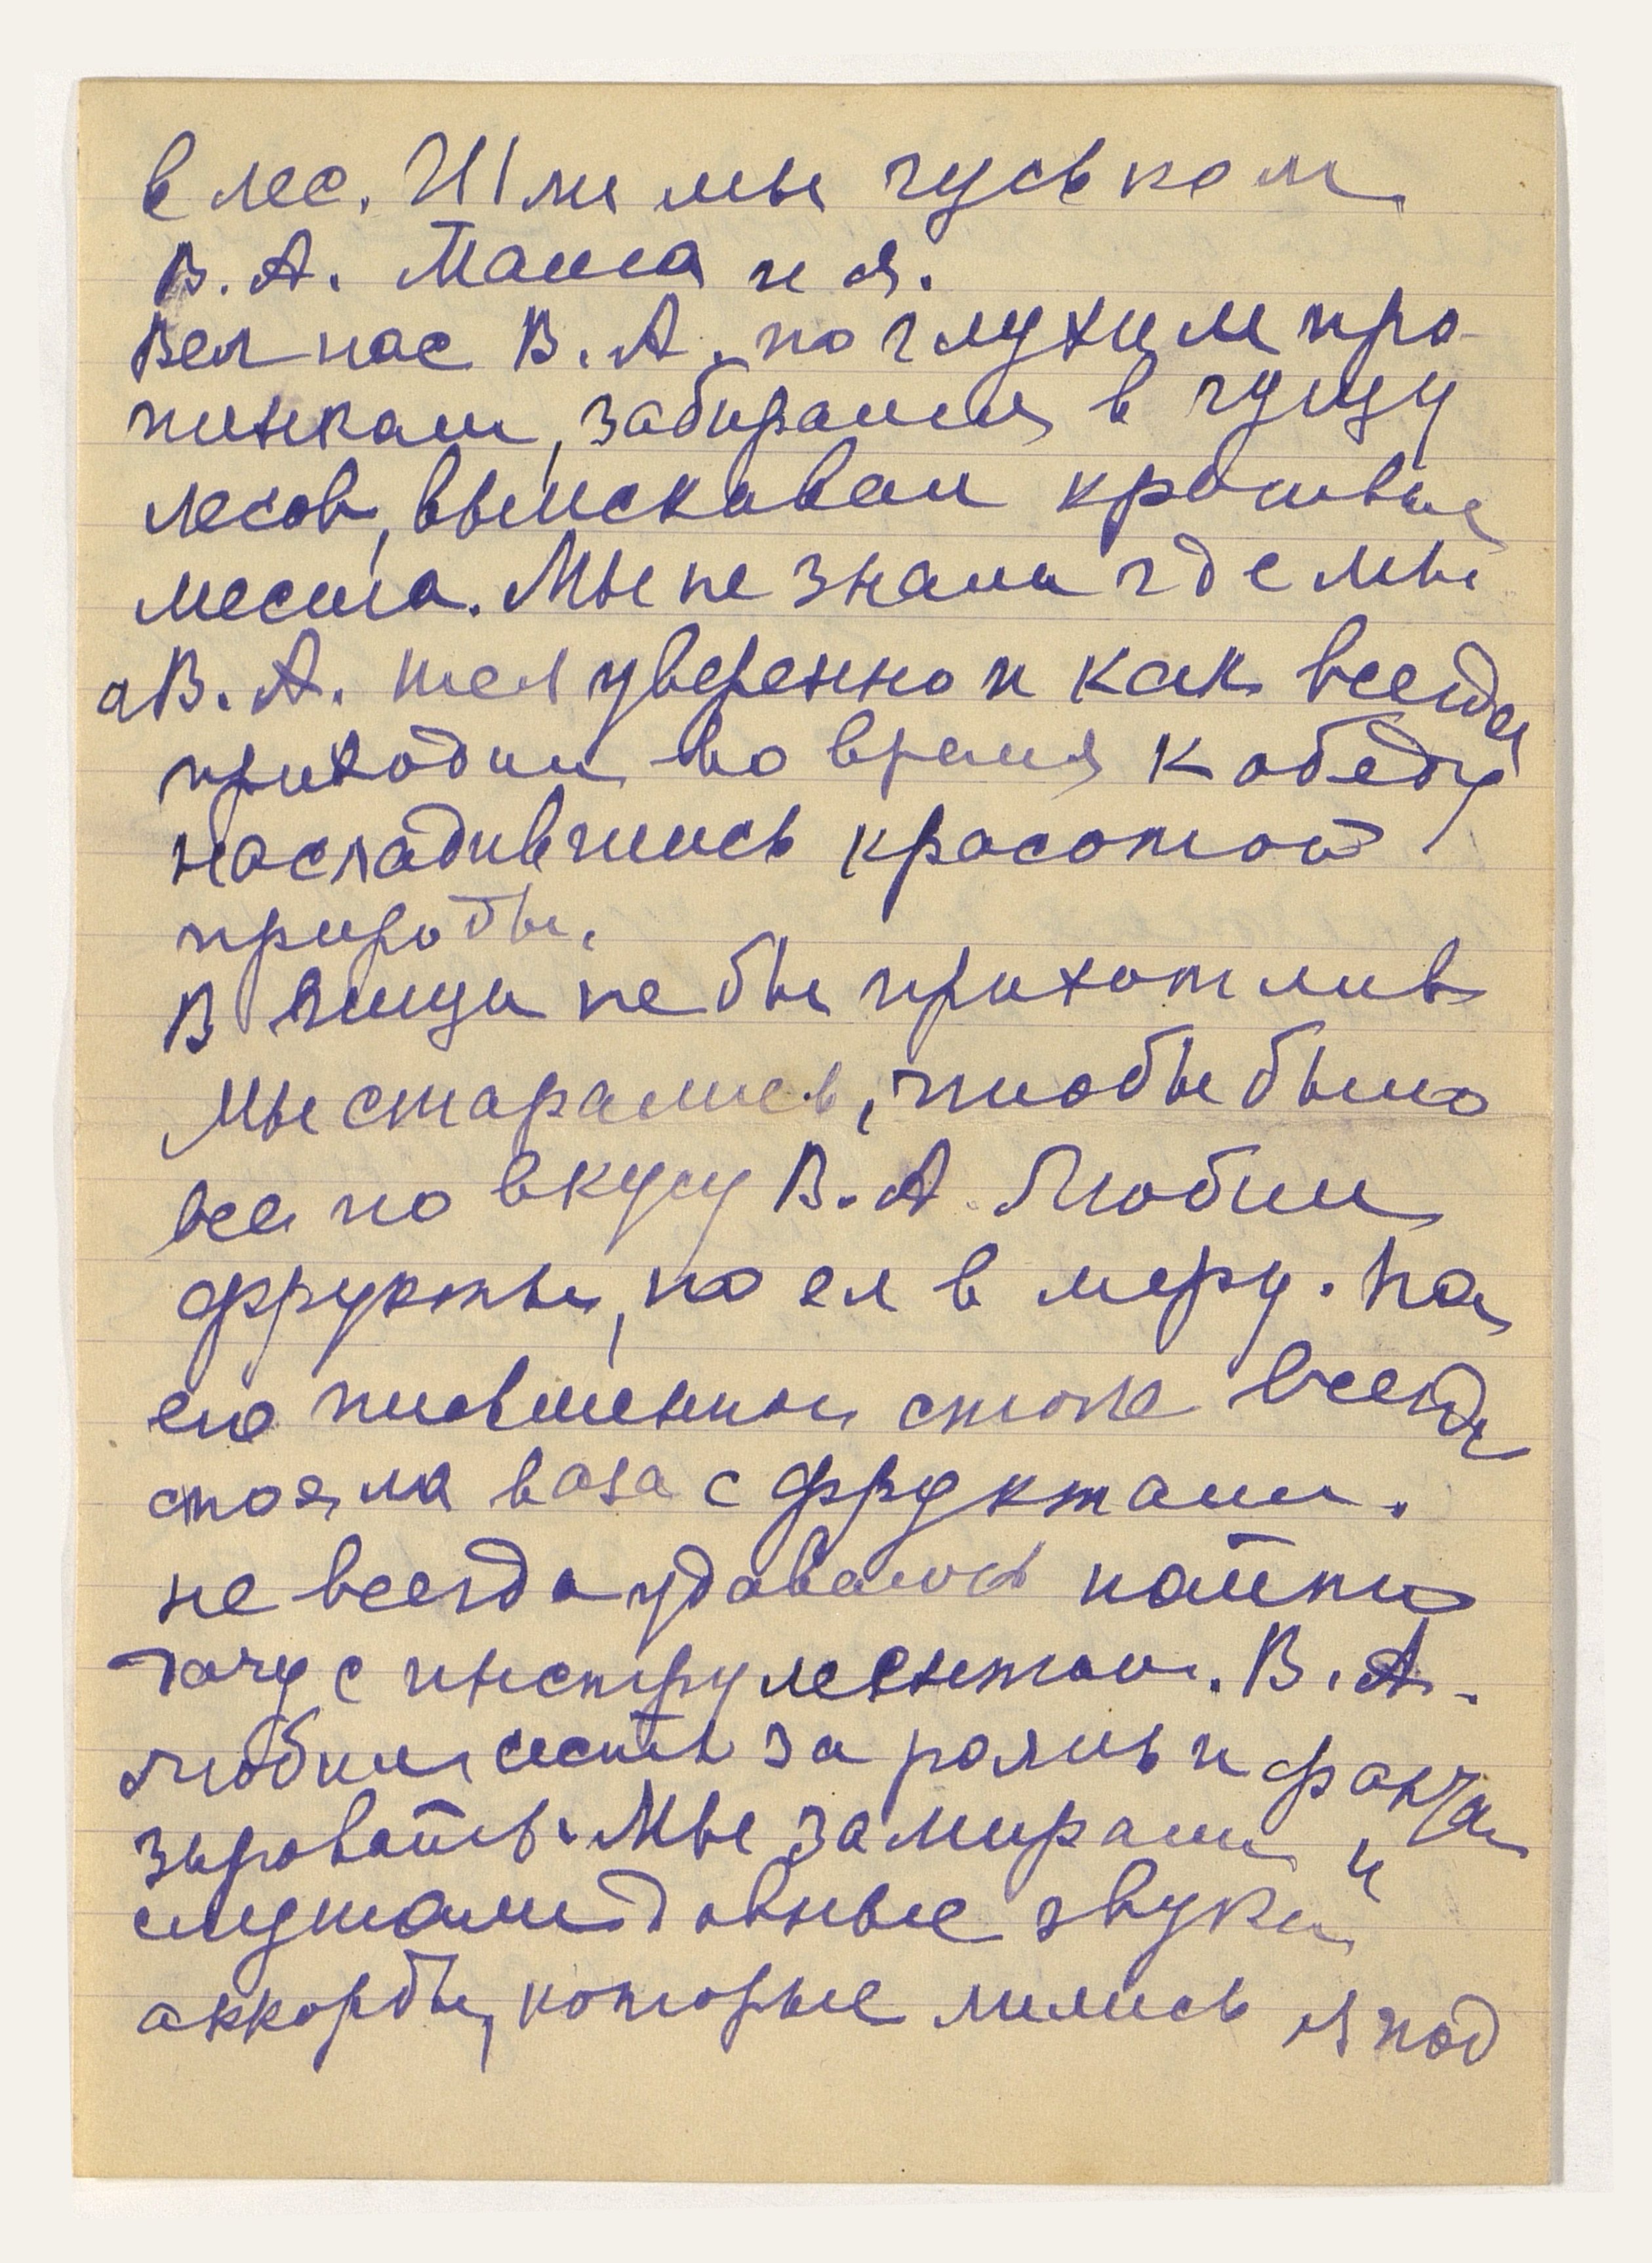 в лес. Шли мы гуськом
В. А. Таиса и я.
Вел нас В. А. по глухим тро-
пинкам, забирался в гущу
лесов, выискивал красивые
места. Мы не знали где мы
а В. А. шел уверенно и как всегда
приходил во время к обеду
насладившись красотой
природы.
В пищи не был прихотлив
Мы старались, чтобы было
все по вкусу В. А. Любил
фрукты, но ел в меру. На
его письменном столе всегда
стояла ваза с фруктами.
не всегда удавалось найти
дачу с инструментом. В. А.
любил сесть за рояль и фанта
зировать. Мы замирали и
слушали дивные звуки
аккорды, которые лились из под